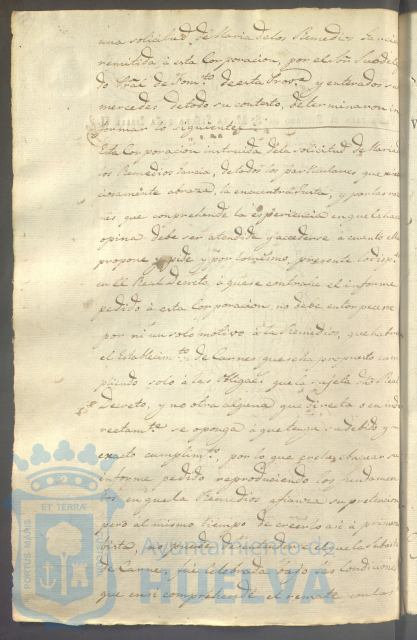 una solicitud de Maria de los Remedios Garcia
remitida á esta Corporacion, por el Sôr Subdele
do Pral de Fomto de esta Prova y enterados sus
mercedes de todo su contexto, determinaron in
formar lo siguiente
Esta Corporacion instruida de la solicitud de Maria
los Remedios Garcia, de todos los particulares que
abraza, la encuentra justa, y por las razo
nes que comprehende la esperiencia en que se hace
opina debe ser atendida y accederse á cuanto ella
propone y pide y por lo mismo, presente lo disp
en el Real Decreto, á que se contrahe el informe
pedido á esta Corporacion, no debe entorpecerse
por ni un solo motivo á la Remedios, que habra
el Establecimto de Carnes que se ha propuesto cum
pliendo solo á las obligas que la sujeta dho Real
Decreto, y no otra alguna que directa o indi
rectamte se oponga á que tenga su debido y
exacto cumplimto, por lo que evacuar su
informe pedido reproduciendo los fundamen
tos en que la Remedios afianza su pretencion
pero al mismo tiempo de creerlo asi á primera
vista, no puede desentenderse que la Subasta
de Carnes, fue celebrada bajo las condiciones
que en si comprehende el remate con los
ET TERRÆ
PORTUS MARIS
CUSTODIA
Ayuntamiento de
HUELVA